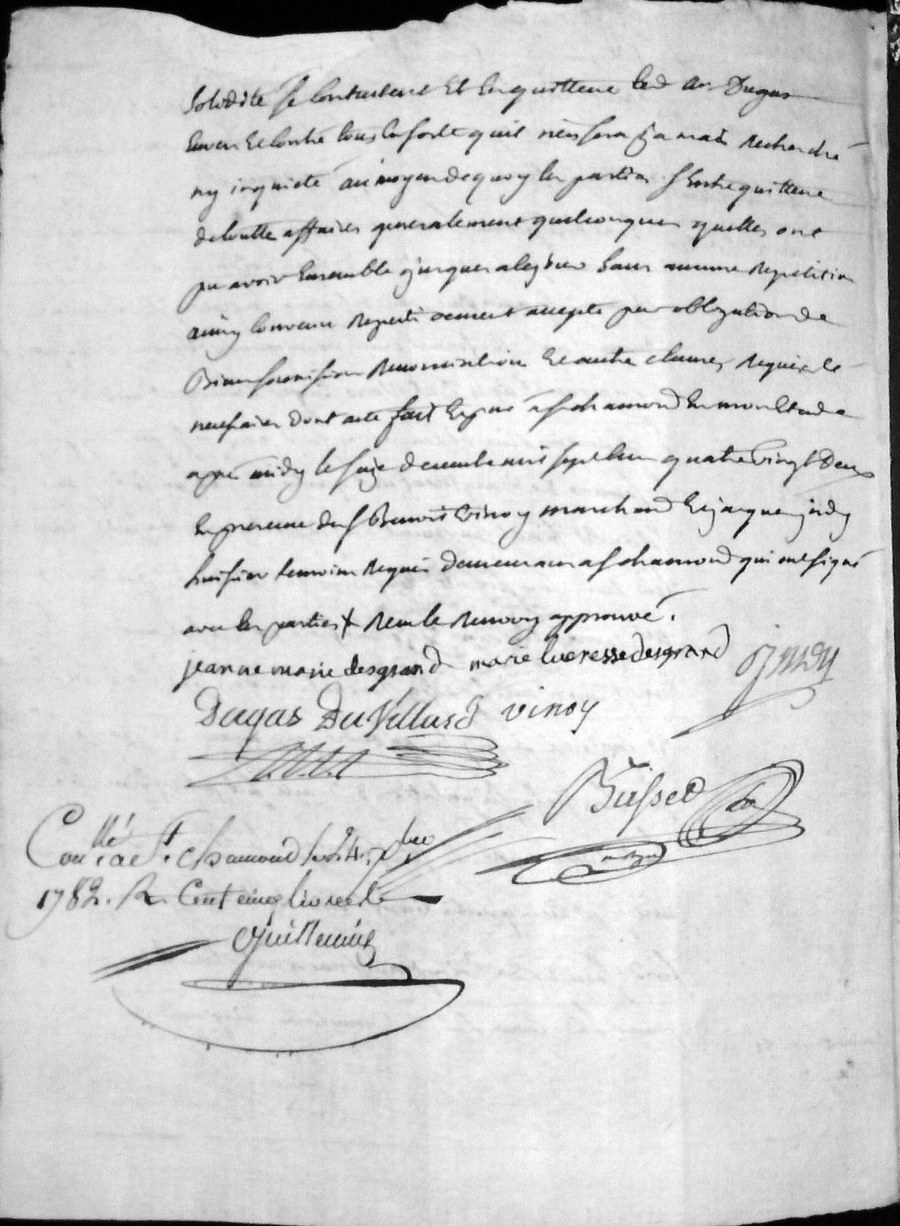 solidité se contentent et en quittent led sr. Dugas
envers et contre tous en sorte qu'il n'en sera jamais recherché
ny inquieté au moyen de quoy les parties s'entrequittent
de toutte affaires generalement quelconques qu'elles ont
pu avoir ensemble jusques a ce jour sans aucune repetition
ainsy convenu respectivement accepté par obligation de
Biens soumission renonciation et autre clauses requises et
necessaires dont acte fait et passé a st chamond en mon etude
apres midy le seize decembre mil sept cent quatre vingt deux
en presence de s Benoit Vinoy marchand et jacques jurdy
huissier temoins requis demeurans a st chamond qui ont signé
avec les parties renvoy approuvé.
jeanne marie desgrand marie lucresse desgrand
Dugas Du Villard vinoy
Con.llé a st. chamond le 24. xbre
1782. R. Cent cinq livres
Guillemin